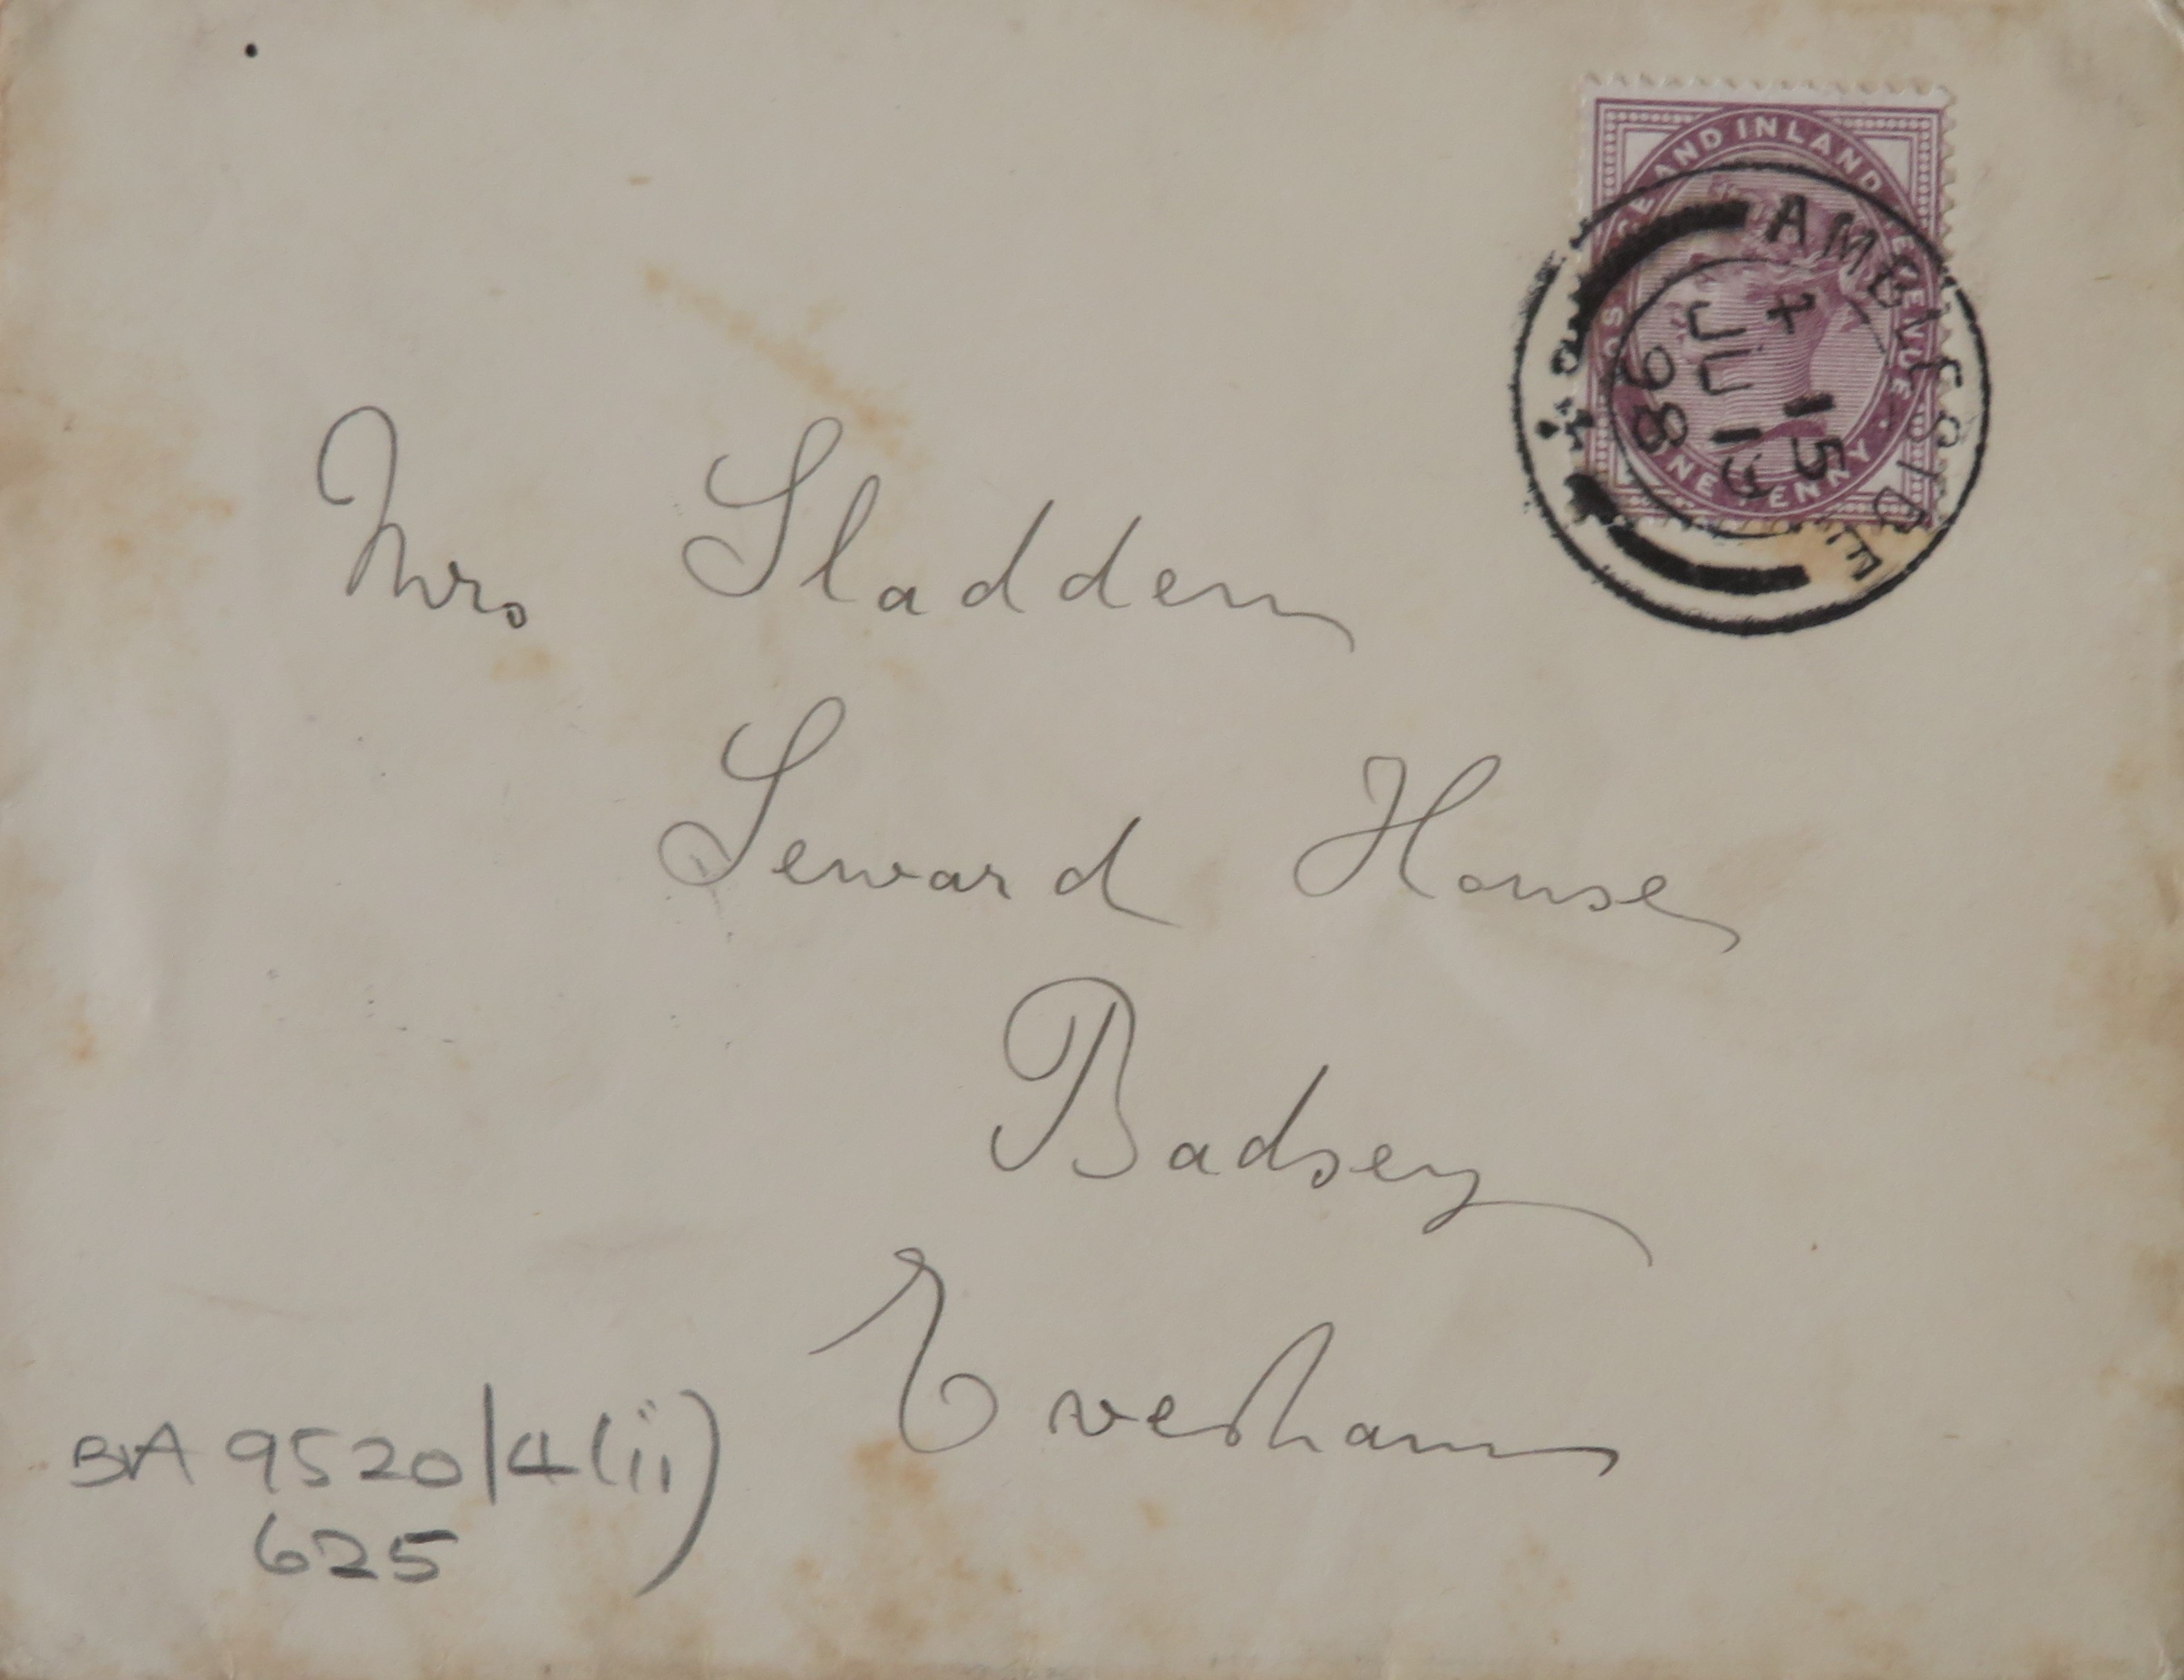 POSTAGE AND INLAND REVENUE
ONE PENNY
AMBLESIDE
7 15
JU 13
98
Mrs Sladden
Seward House
Badsey
Evesham
BA 9520/4(ii)
625